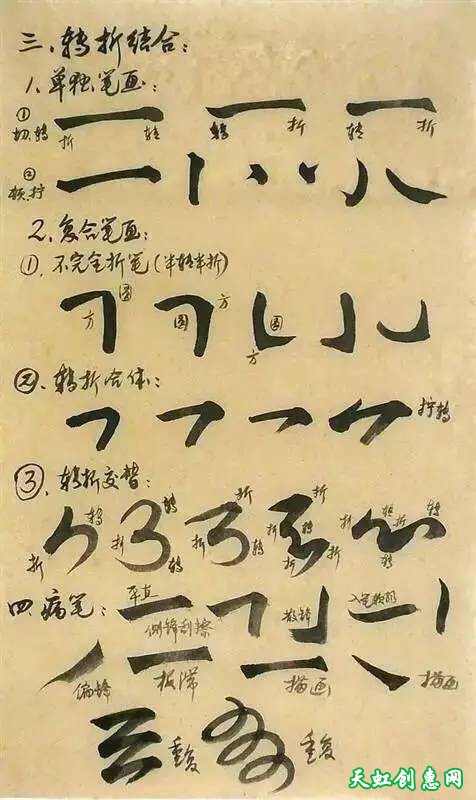 三、转折结合：
1、单独笔画：
① 切、转 折 转 转 折 转 折
② 顿、拧
2、复合笔画：
①、不完全折笔（半转半折）
方 圆 圆 方 圆 方
②、转折合体：
拧转
③、转折交替：
折 转 折 转 转 折 折 转 折 折 转 折 折 折 转 折 转 转
四、病笔：
平直 侧锋刮擦 散锋 入笔
偏锋 板滞 描画 描画
重复 重复
天虹创惠网